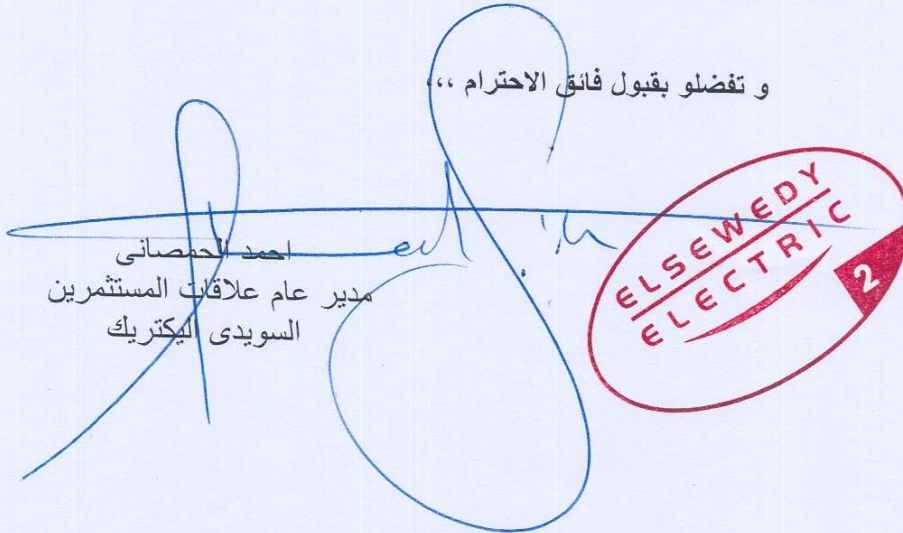 و تفضلو بقبول فائق الاحترام ،،،
احمد الحمصانى
مدير عام علاقات المستثمرين
السويدى اليكتريك
ELSEWEDY
ELECTRIC
2